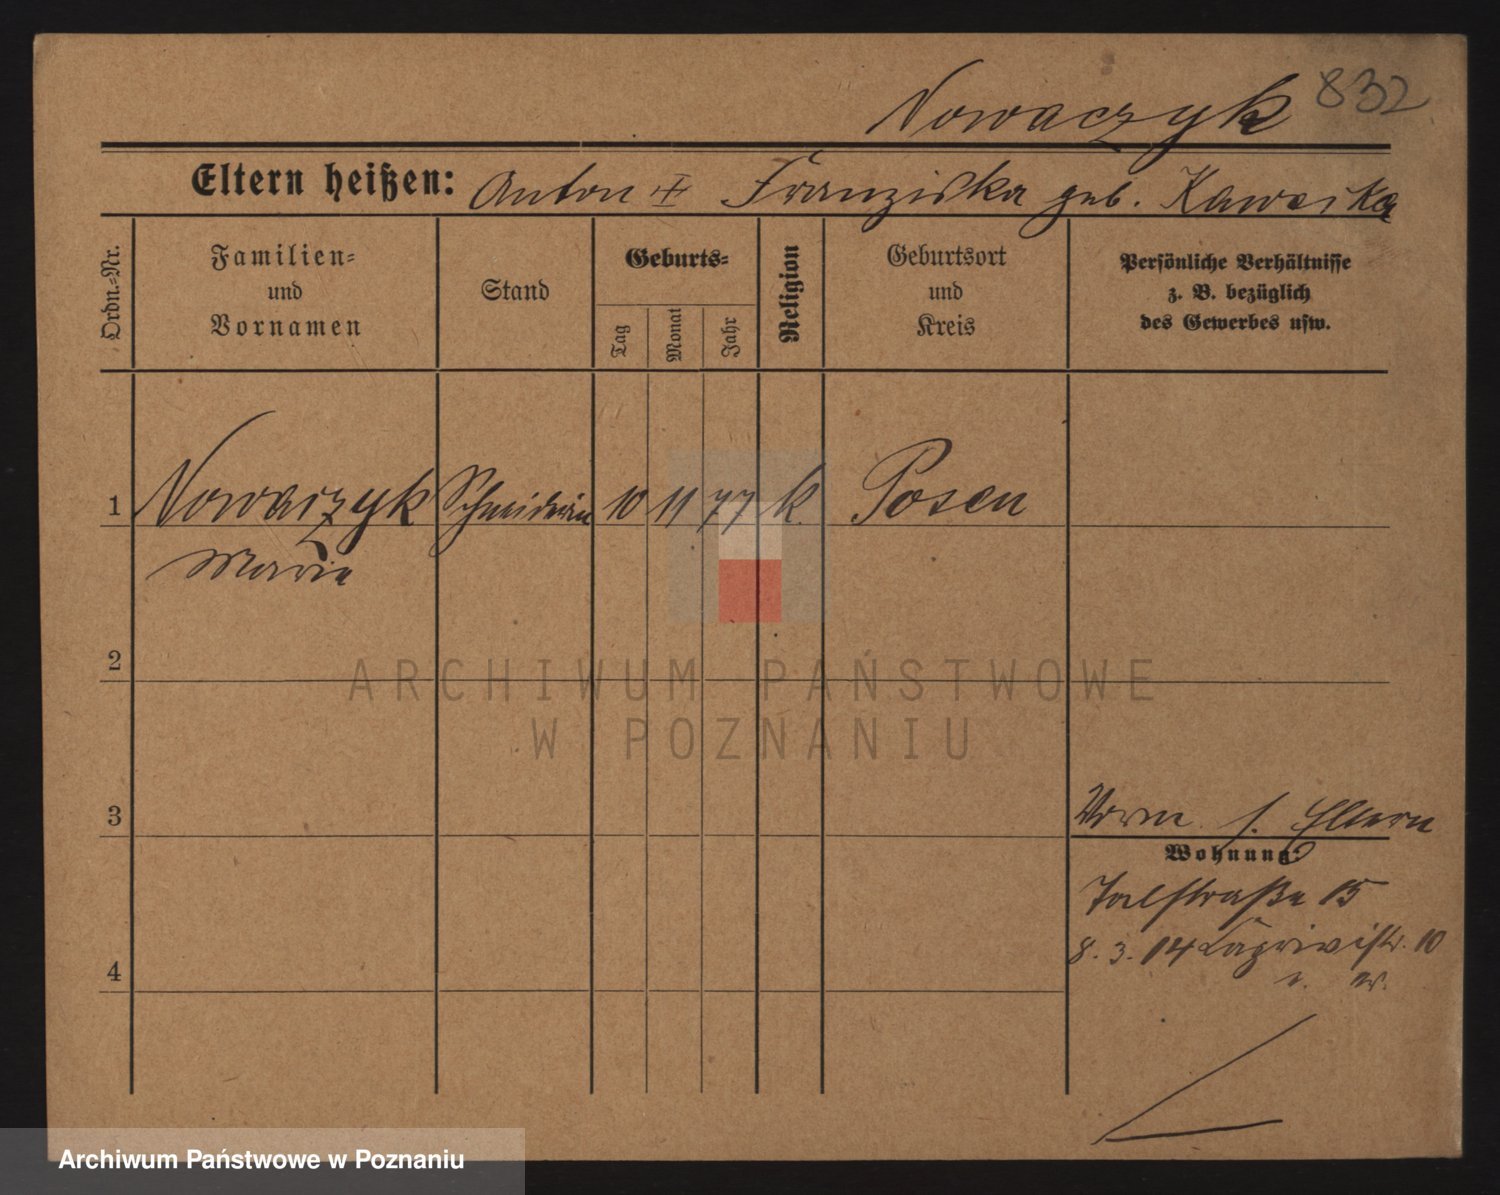 Nowaczyk 832
Eltern heißen: Anton + Franziska geb. Kawecka
Ordn.-Nr.
Familien-
und
Vornamen
Stand
Geburts-
Tag
Monat
Jahr
Religion
Geburtsort
und
Kreis
Persönliche Verhältnisse
z. B. bezüglich
des Gewerbes usw.
1 Nowaczyk Schneiderin 10 11 77 k. Posen
Marie
2
3
Vorm. s. Eltern
Wohnung:
Talstraße 15
8. 3. 14 Caprivistr. 10
4
ARCHIWUM PAŃSTWOWE
W POZNANIU
Archiwum Państwowe w Poznaniu